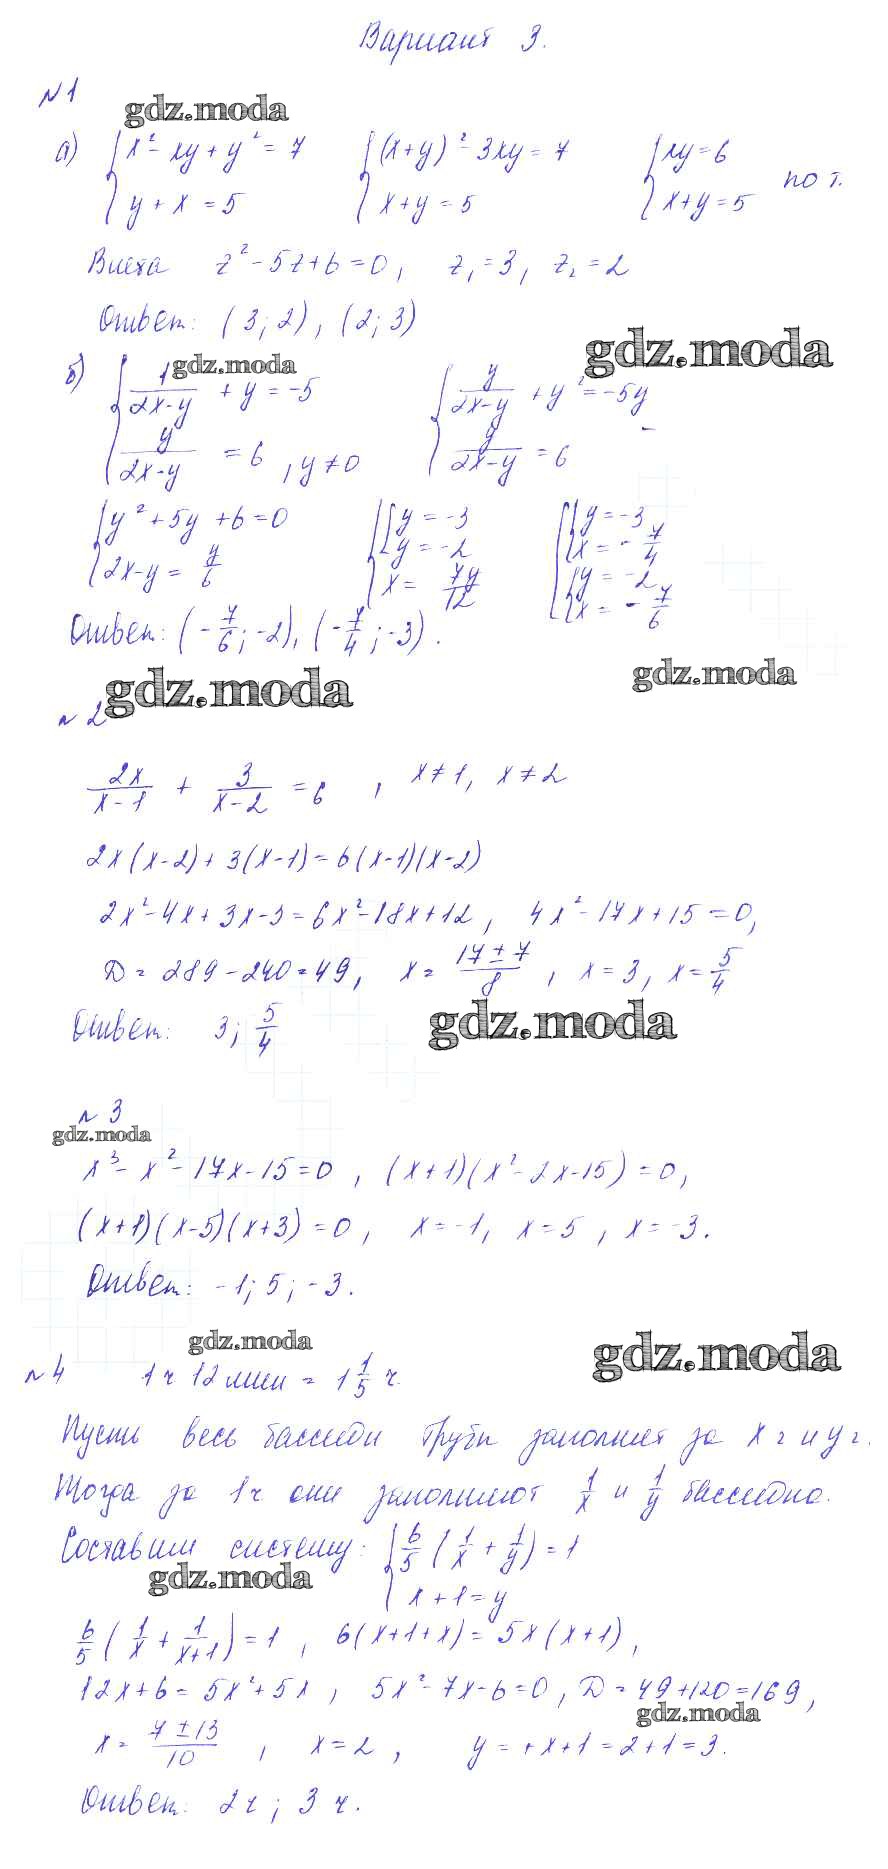 Вариант 3.
№1
gdz.moda
а) { x² - xy + y² = 7 { (x+y)² - 3xy = 7 { xy = 6
{ y + x = 5 { x+y = 5 { x+y = 5 по т.
Виета z² - 5z + 6 = 0, z₁ = 3, z₂ = 2
Ответ: (3; 2), (2; 3)
gdz.moda
gdz.moda
б) { 1/(2x-y) + y = -5 { y/(2x-y) + y² = -5y
{ y/(2x-y) = 6, y ≠ 0 { y/(2x-y) = 6
{ y² + 5y + 6 = 0 { [ y = -3 [ { y = -3
{ 2x-y = y/6 { [ y = -2 [ { x = -7/4
{ x = 7y/12 [ { y = -2
[ { x = -7/6
Ответ: (-7/6; -2), (-7/4; -3).
gdz.moda
gdz.moda
№2
2x/(x-1) + 3/(x-2) = 6, x ≠ 1, x ≠ 2
2x(x-2) + 3(x-1) = 6(x-1)(x-2)
2x² - 4x + 3x - 3 = 6x² - 18x + 12, 4x² - 17x + 15 = 0,
D = 289 - 240 = 49, x = (17 ± 7)/8, x = 3, x = 5/4
Ответ: 3; 5/4
gdz.moda
№3
gdz.moda
x³ - x² - 17x - 15 = 0, (x+1)(x² - 2x - 15) = 0,
(x+1)(x-5)(x+3) = 0, x = -1, x = 5, x = -3.
Ответ: -1; 5; -3.
gdz.moda
gdz.moda
№4 1 ч 12 мин = 1 1/5 ч.
Пусть весь бассейн трубы заполнят за x ч и y ч.
Тогда за 1 ч они заполняют 1/x и 1/y бассейна.
Составим систему: { 6/5 (1/x + 1/y) = 1
{ x + 1 = y
gdz.moda
6/5 (1/x + 1/(x+1)) = 1, 6(x+1+x) = 5x(x+1),
12x + 6 = 5x² + 5x, 5x² - 7x - 6 = 0, D = 49 + 120 = 169,
gdz.moda
x = (7 ± 13)/10, x = 2, y = +x+1 = 2+1 = 3.
Ответ: 2 ч; 3 ч.